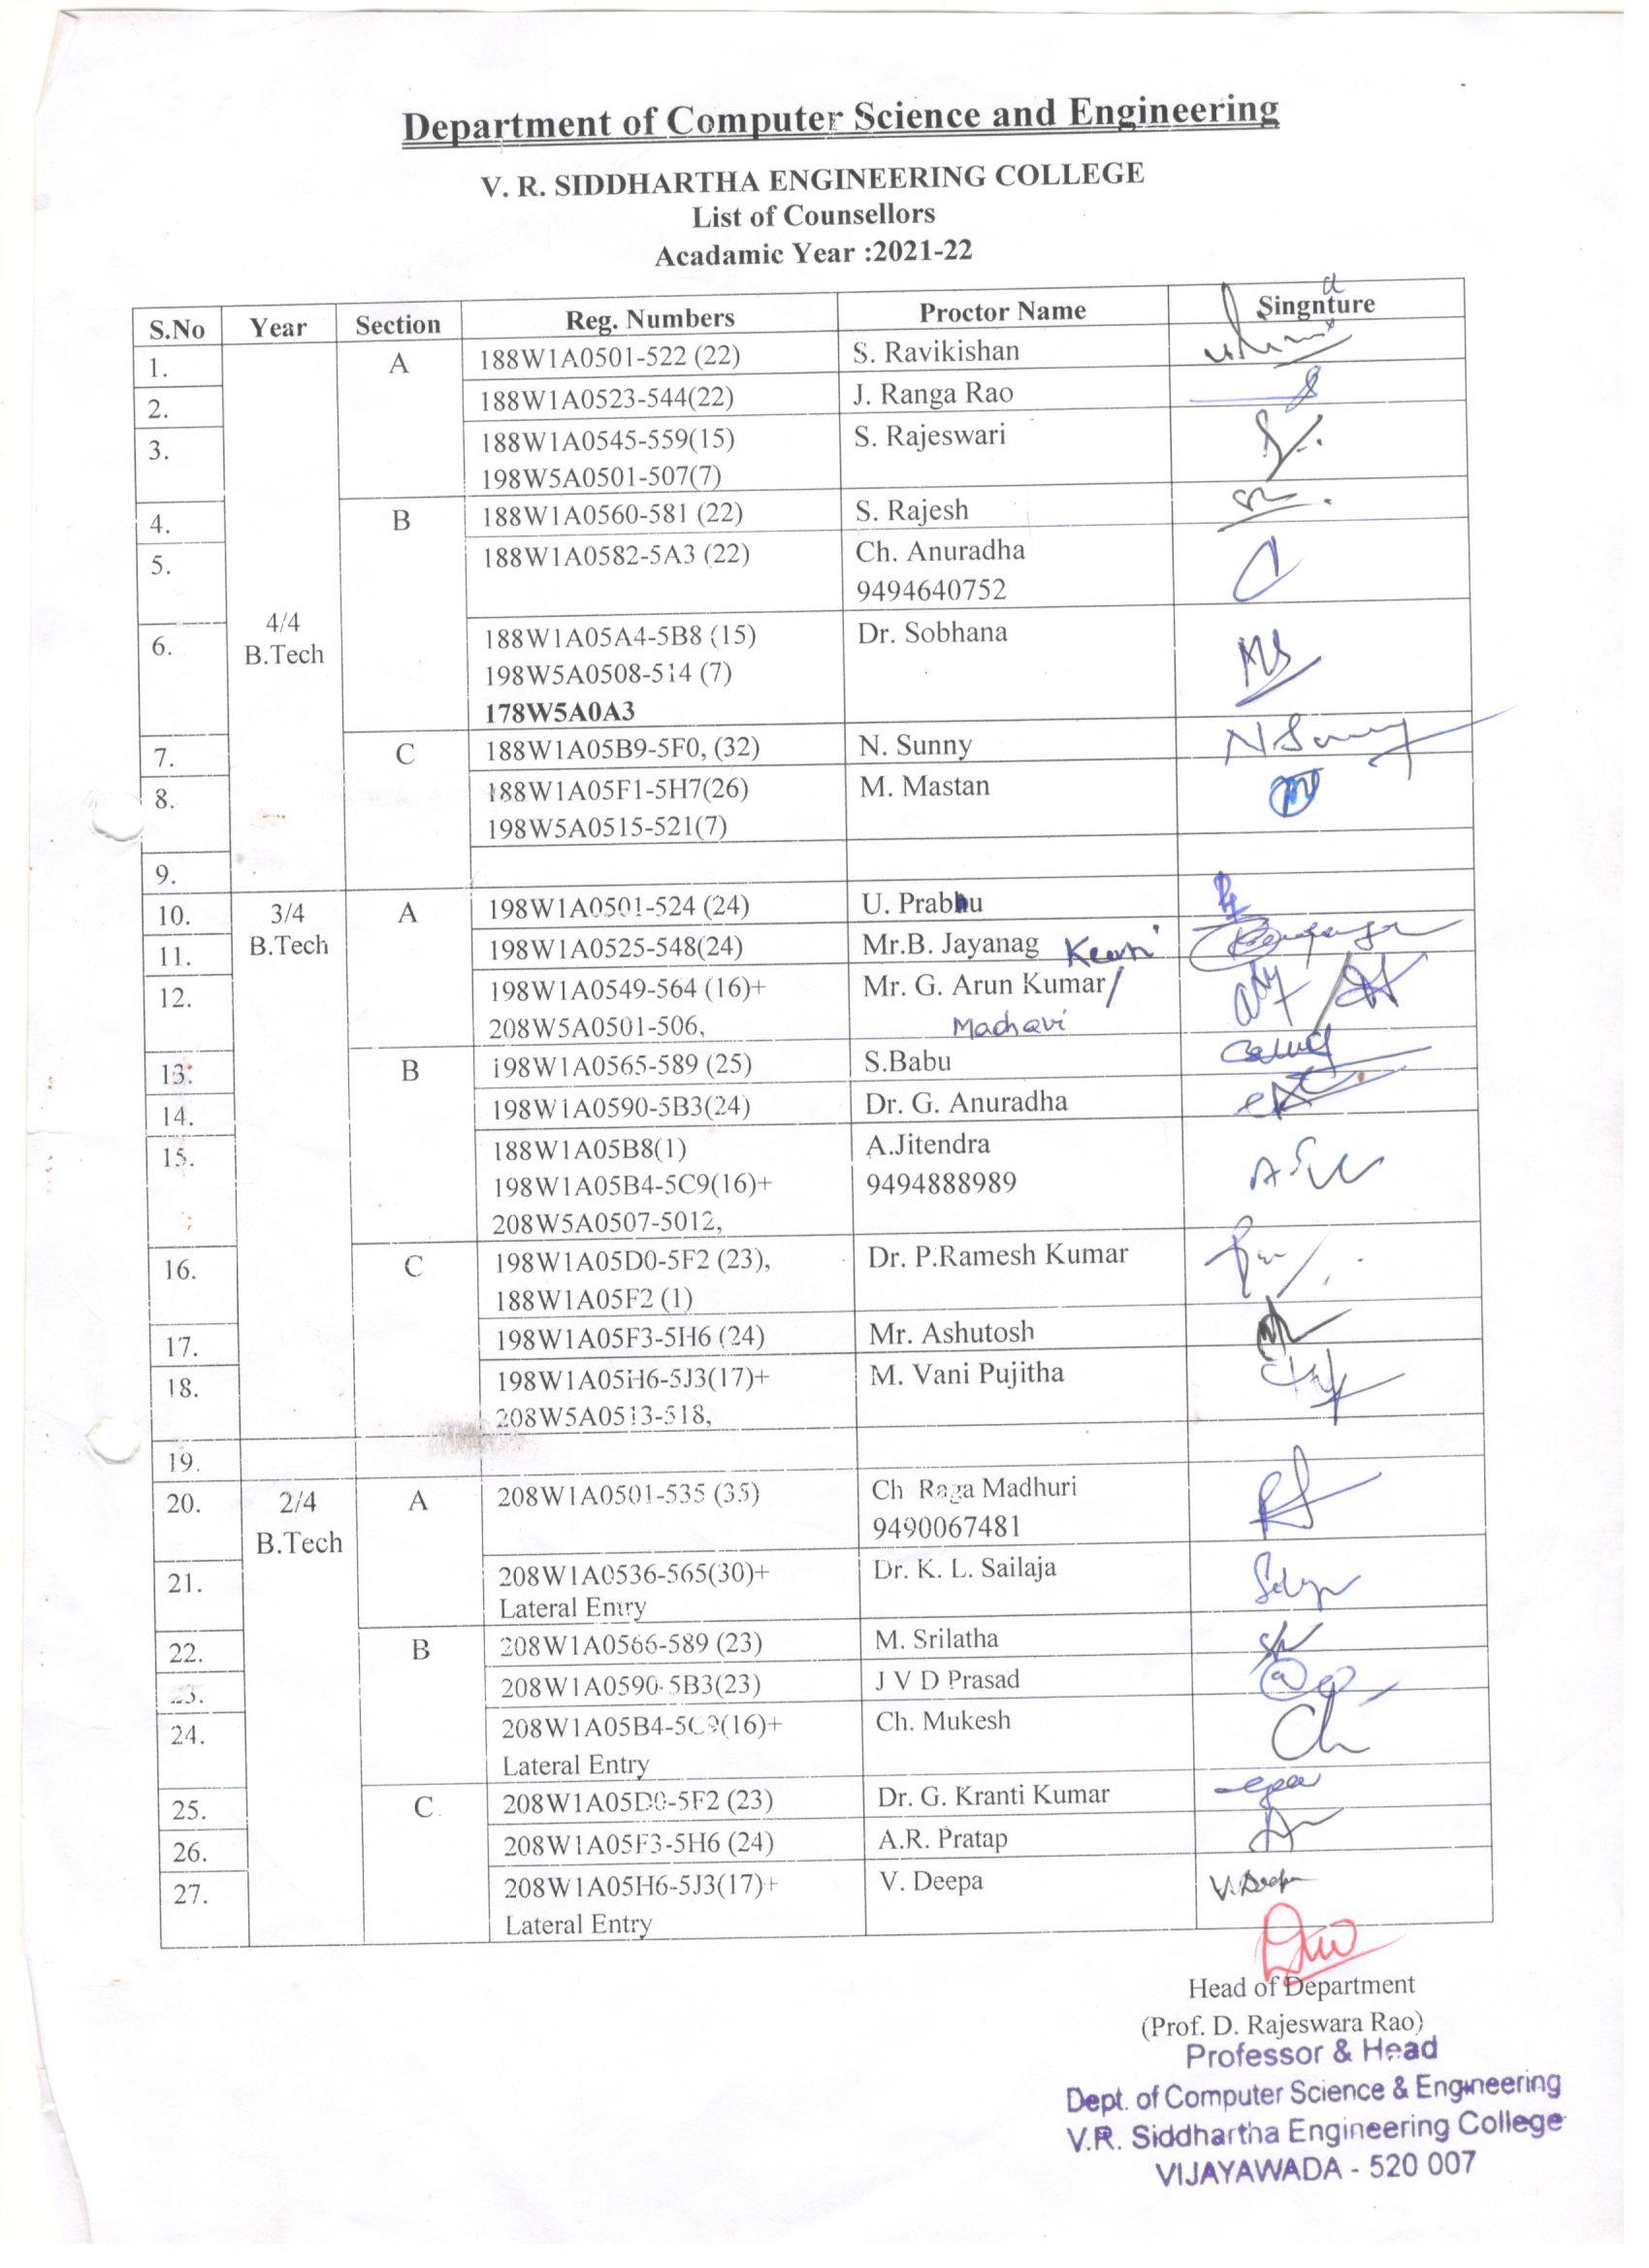 Department of Computer Science and Engineering
V. R. SIDDHARTHA ENGINEERING COLLEGE
List of Counsellors
Acadamic Year :2021-22
S.No Year Section Reg. Numbers Proctor Name Singnture
1. A 188W1A0501-522 (22) S. Ravikishan
2. 188W1A0523-544(22) J. Ranga Rao
3. 188W1A0545-559(15) S. Rajeswari
198W5A0501-507(7)
4. B 188W1A0560-581 (22) S. Rajesh
5. 188W1A0582-5A3 (22) Ch. Anuradha
9494640752
4/4
B.Tech
6. 188W1A05A4-5B8 (15) Dr. Sobhana
198W5A0508-514 (7)
178W5A0A3
7. C 188W1A05B9-5F0, (32) N. Sunny N Sunny
8. 188W1A05F1-5H7(26) M. Mastan
198W5A0515-521(7)
9.
10. 3/4 A 198W1A0501-524 (24) U. Prabhu
11. B.Tech 198W1A0525-548(24) Mr.B. Jayanag
12. 198W1A0549-564 (16)+ Mr. G. Arun Kumar/
208W5A0501-506, Madhavi
13. B 198W1A0565-589 (25) S.Babu
14. 198W1A0590-5B3(24) Dr. G. Anuradha
15. 188W1A05B8(1) A.Jitendra
198W1A05B4-5C9(16)+ 9494888989
208W5A0507-5012,
16. C 198W1A05D0-5F2 (23), Dr. P.Ramesh Kumar
188W1A05F2 (1)
17. 198W1A05F3-5H6 (24) Mr. Ashutosh
18. 198W1A05H6-5J3(17)+ M. Vani Pujitha
208W5A0513-518,
19.
20. 2/4 A 208W1A0501-535 (35) Ch Raga Madhuri
B.Tech 9490067481
21. 208W1A0536-565(30)+ Dr. K. L. Sailaja
Lateral Entry
22. B 208W1A0566-589 (23) M. Srilatha
23. 208W1A0590-5B3(23) J V D Prasad
24. 208W1A05B4-5C9(16)+ Ch. Mukesh
Lateral Entry
25. C 208W1A05D0-5F2 (23) Dr. G. Kranti Kumar
26. 208W1A05F3-5H6 (24) A.R. Pratap
27. 208W1A05H6-5J3(17)+ V. Deepa V. Deepa
Lateral Entry
Head of Department
(Prof. D. Rajeswara Rao)
Professor & Head
Dept. of Computer Science & Engineering
V.R. Siddhartha Engineering College
VIJAYAWADA - 520 007